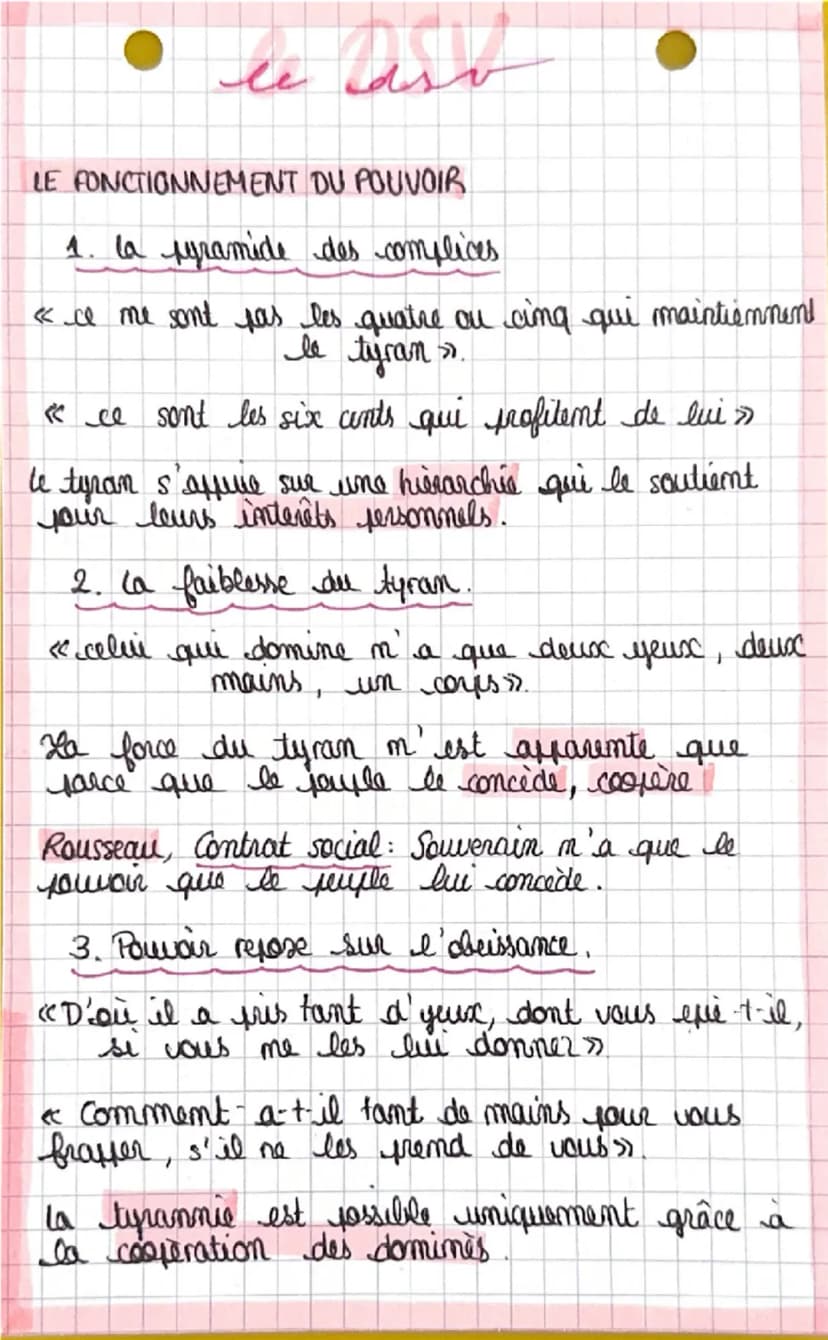 le DSV
LE FONCTIONNEMENT DU POUVOIR
1. la pyramide des complices
« ce ne sont pas les quatre ou cinq qui maintiennent
le tyran ».
« ce sont les six cents qui profitent de lui »
le tyran s'appuie sur une hiérarchie qui le soutient
pour leurs interêts personnels.
2. la faiblesse du tyran.
« celui qui domine n'a que deux yeux, deux
mains, un corps ».
La force du tyran n'est apparente que
parce que le peuple le concède, coopère
Rousseau, Contrat social : Souverain n'a que le
pouvoir que le peuple lui concède.
3. Pouvoir repose sur l'obeissance.
« D'où il a pris tant d'yeux, dont vous epie-t-il,
si vous ne les lui donnez »
« Comment-a-t-il tant de mains pour vous
frapper, s'il ne les prend de vous ».
la tyrannie est possible uniquement grâce à
la coopération des dominés.